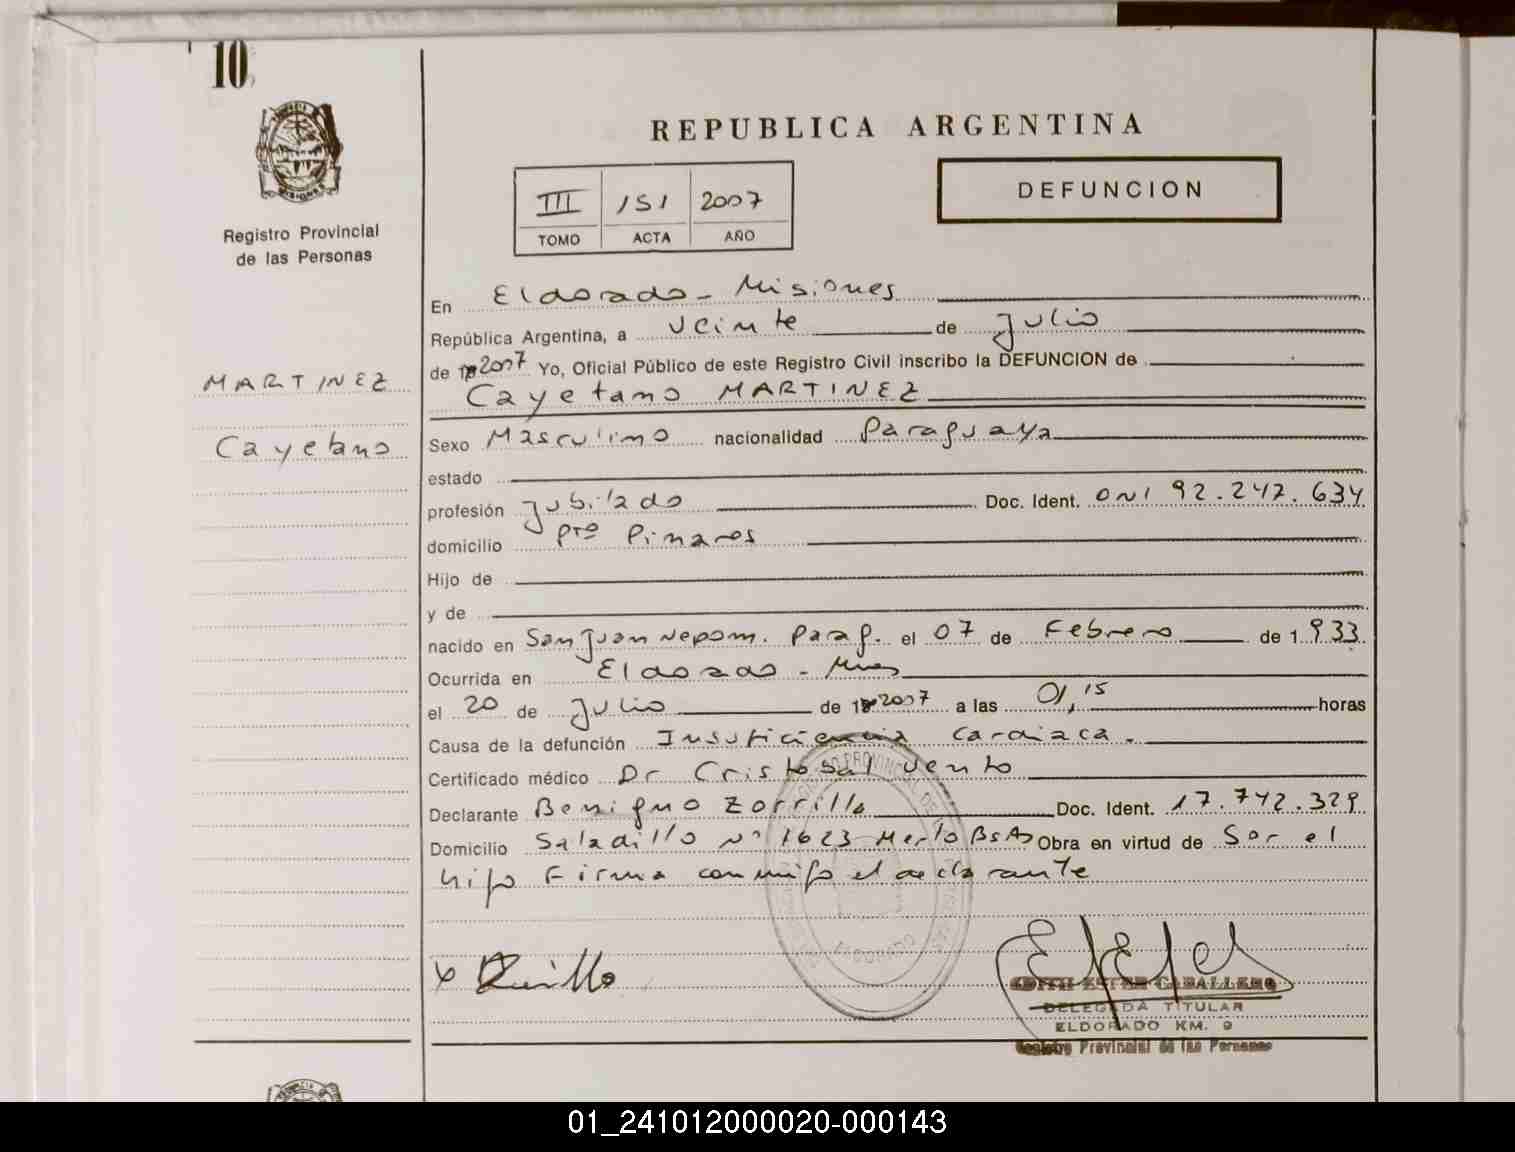 10
REPUBLICA ARGENTINA
DEFUNCION
III 151 2007
TOMO ACTA AÑO
Registro Provincial
de las Personas
MARTINEZ
Cayetano
En Eldorado - Misiones
República Argentina, a veinte de Julio
de 2007 Yo, Oficial Público de este Registro Civil inscribo la DEFUNCION de
Cayetano MARTINEZ
Sexo Masculino nacionalidad Paraguaya
estado
profesión Jubilado Doc. Ident. DNI 92.242.634
domicilio Pto Pinares
Hijo de
y de
nacido en San Juan Nepom. Parag. el 07 de Febrero de 1.933.
Ocurrida en Eldorado - Mnes
el 20 de Julio de 2007 a las 01,15 horas
Causa de la defunción Insuficiencia Cardiaca.
Certificado médico Dr Cristobal Vento
Declarante Benigno Zorrilla Doc. Ident. 17.742.329
Domicilio Saladillo Nº 1623 Merlo BsAs Obra en virtud de Ser el
hijo Firma conmigo el declarante
ELDORADO
EDITH ESTER CABALLERO
DELEGADA TITULAR
ELDORADO KM. 9
Registro Provincial de las Personas
01_241012000020-000143